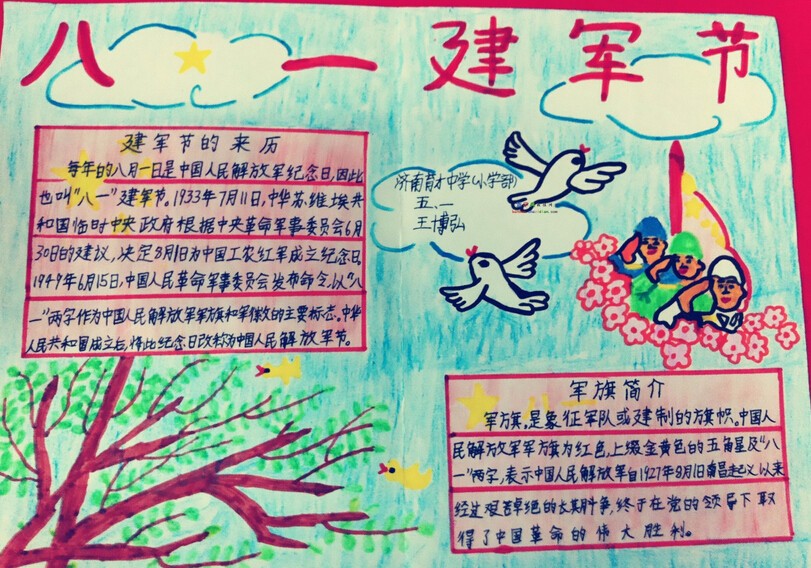 八一建军节
建军节的来历
每年的八月一日是中国人民解放军纪念日,因此
也叫“八一”建军节。1933年7月11日,中华苏.维.埃共
和国临时中央政府根据中央革命军事委员会6月
30日的建议,决定8月1日为中国工农红军成立纪念日。
1949年6月15日,中国人民革命军事委员会发布命令,以“八
一”两字作为中国人民解放军军旗和军徽的主要标志。中华
人民共和国成立后,将此纪念日改称为中国人民解放军节。
济南育才中学(小学部)
五、一
王博弘
军旗简介
军旗,是象征军队或建制的旗帜。中国人
民解放军军旗为红色,上缀金黄色的五角星及“八
一”两字,表示中国人民解放军自1927年8月1日南昌起义以来
经过艰苦卓绝的长期斗争,终于在党的领导下取
得了中国革命的伟大胜利。